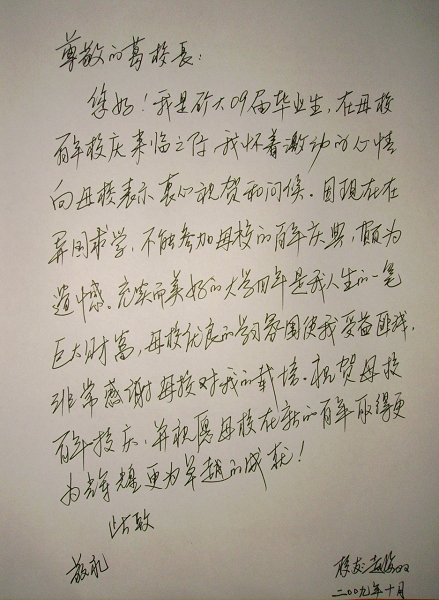 尊敬的葛校長：
您好！我是矿大09届毕业生，在母校
百年校庆来临之际，我怀着激动的心情
向母校表示衷心祝贺和问候。因现在在
异国求学，不能参加母校的百年庆典，颇为
遗憾。充实而美好的大学四年是我人生的一笔
巨大财富，母校优良的学习氛围使我受益匪浅，
非常感谢母校对我的栽培。祝贺母校
百年校庆，并祝愿母校在新的百年取得更
为辉煌更为卓越的成就！
此致
敬礼
校友
二〇〇九年十月